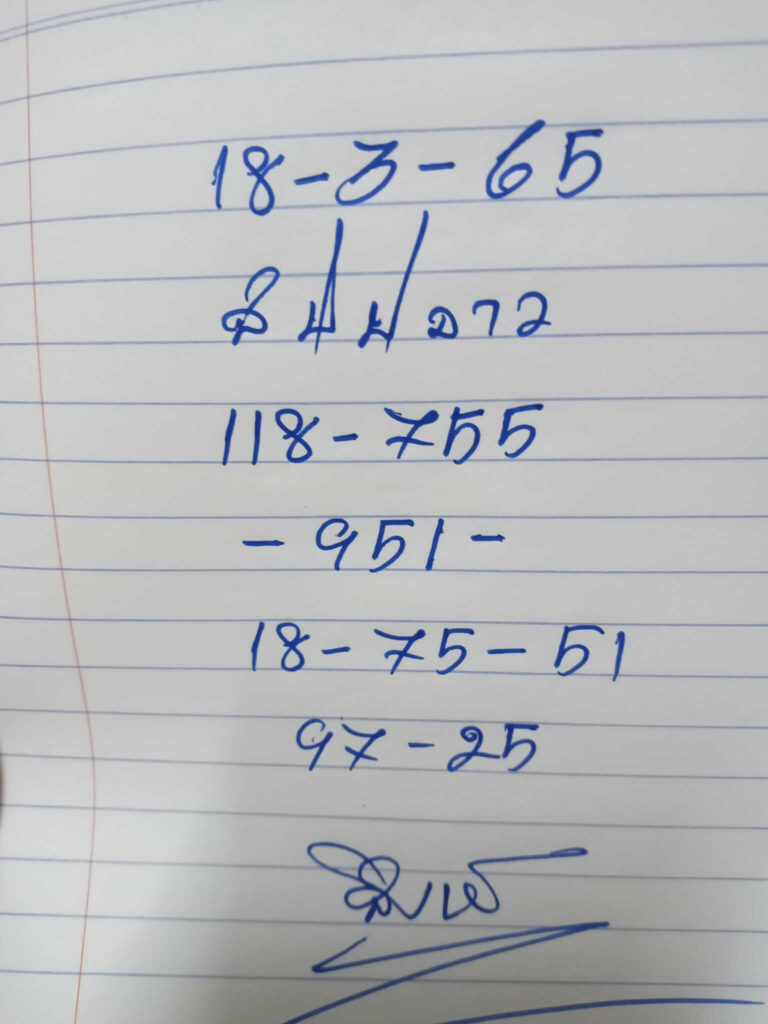 18-3-65
118-755
-951-
18-75-51
97-25